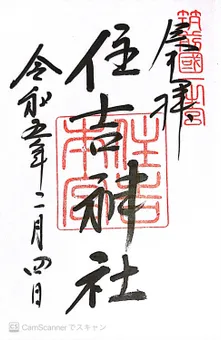 筑前國一之宮
奉拝
住吉神社
住吉本宮
令和五年二月四日
CamScannerでスキャン